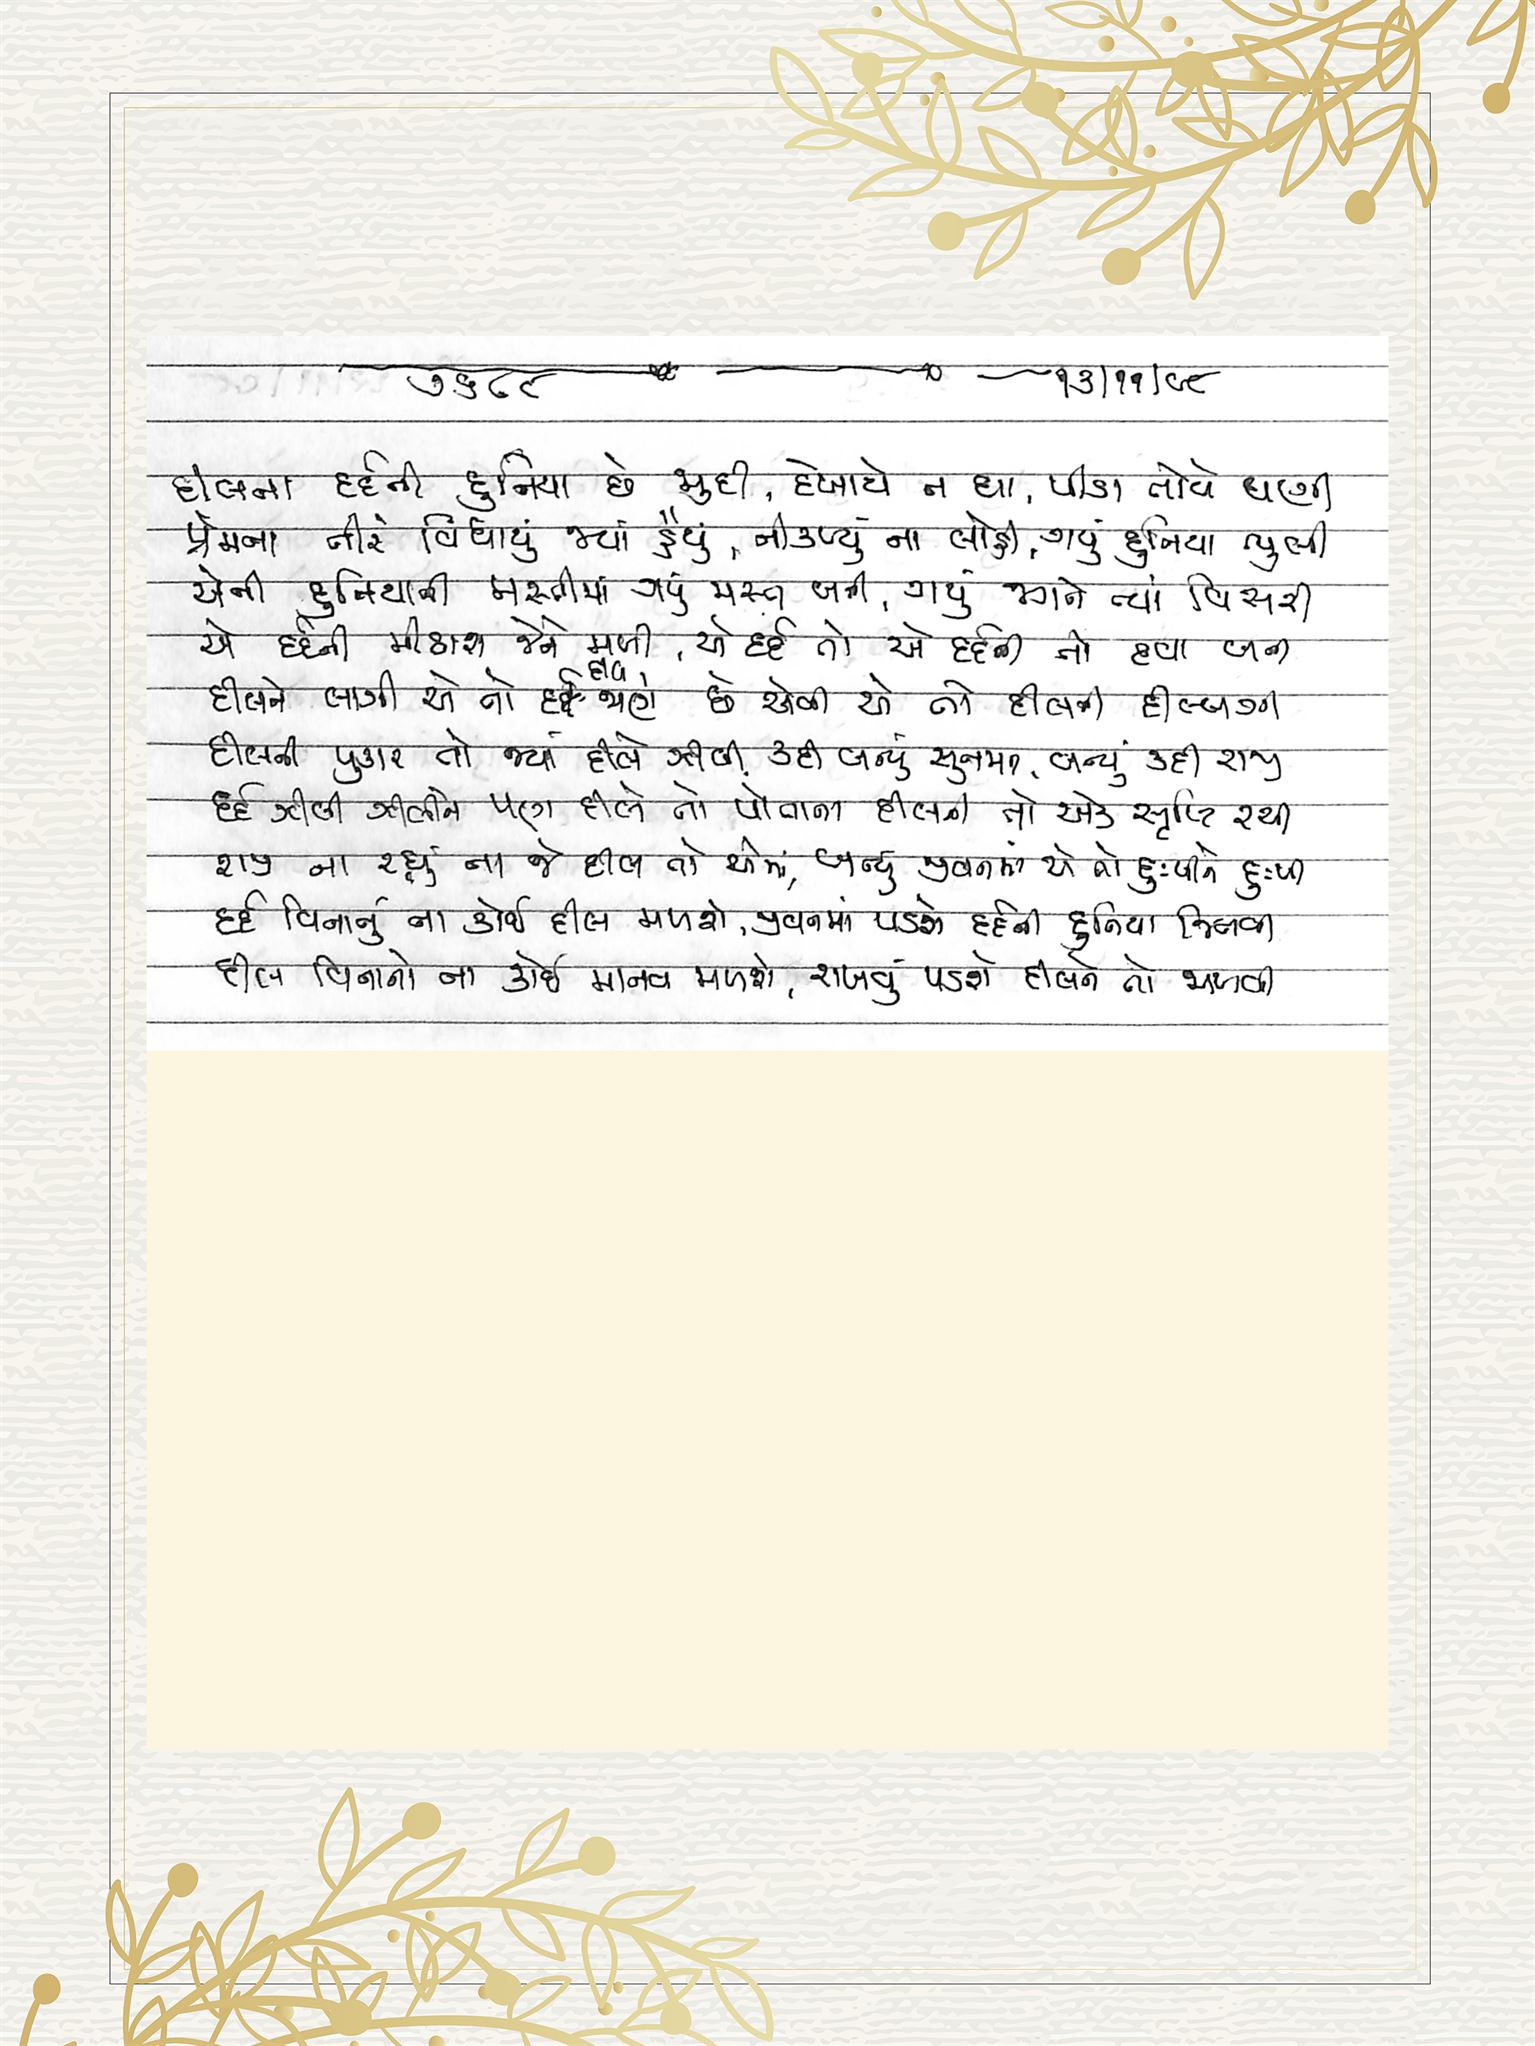 ૭૬૮૯ ૧૩/૧૧/૯૮
દીલના દર્દની દુનિયા છે જુદી, દેખાયે ન ઘા, પીડા તોયે ઘણી
પ્રેમના તીરે વિંધાયું જ્યાં હૈયું, નીકળ્યું ના લોહી, ગયું દુનિયા ભુલી
એની દુનિયાની મસ્તીમાં ગયું મસ્ત બની, ગયું જગને ત્યાં વિસરી
એ દર્દની મીઠાશ જેને મળી, એ દર્દ તો એ દર્દની તો દવા બની
દીલને લાગી એ તો દર્દ દીલ જાણે છે એવી એ તો દીલની દીલ્લગી
દીલની પુકાર તો જ્યાં દીલે ઝીલી, કદી બન્યું સુનમાન, બન્યું કદી રાજી
દર્દ ઝીલી ઝીલીને પણ દીલે તો પોતાના દીલની તો એક સૃષ્ટિ રચી
રાજી ના રહ્યું ના જે દીલ તો એમાં, બન્યું જીવનમાં એ તો દુઃખીને દુઃખી
દર્દ વિનાનું ના કોઈ દીલ મળશે, જીવનમાં પડશે દર્દની દુનિયા નિભાવવી
દીલ વિનાનો ના કોઈ માનવ મળશે, રાખવું પડશે દીલને તો જાળવી